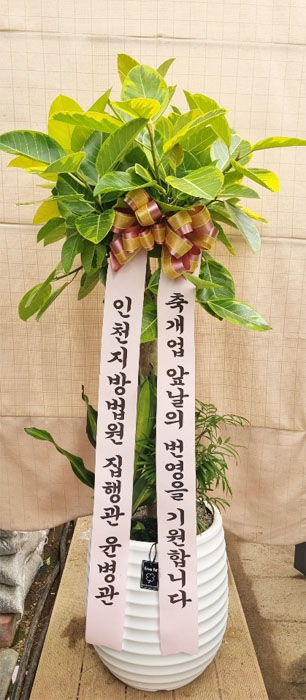 축개업 앞날의 번영을 기원합니다
인천지방법원 집행관 윤병관